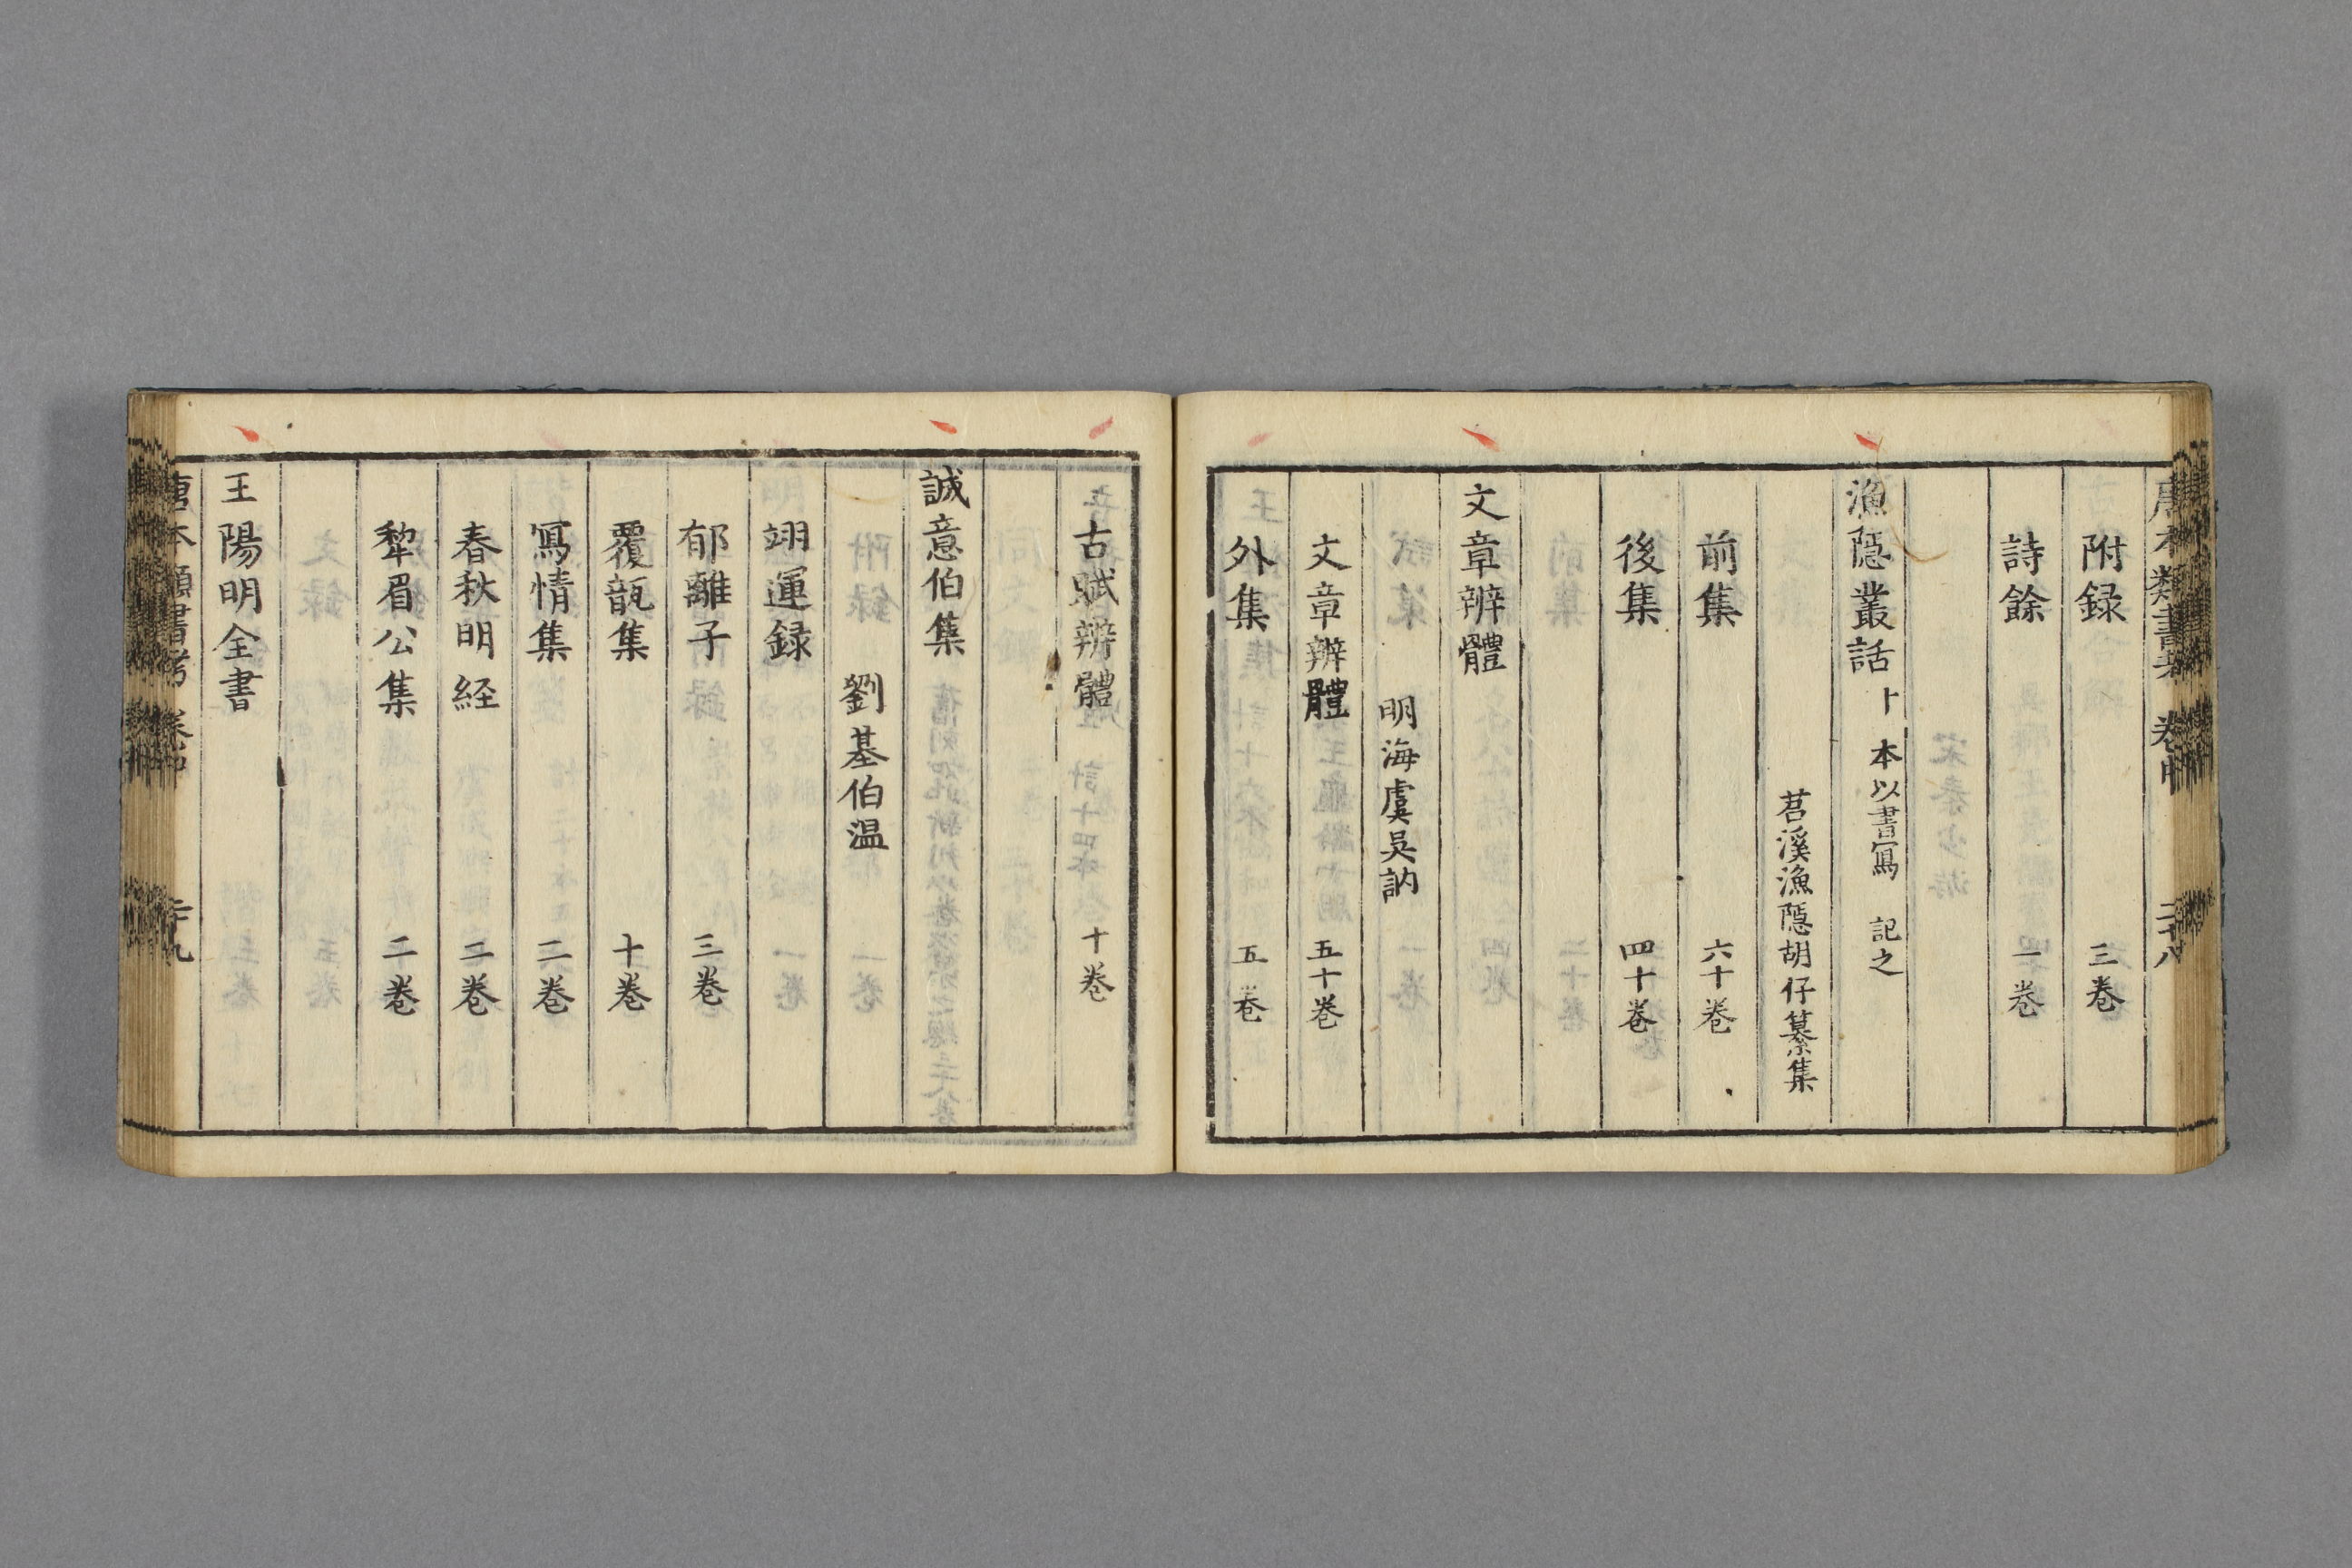 唐本類書考 卷中 二十八
附録 三巻
詩餘 一巻
漁隠叢話 ト 本以書寫 記之
苕溪漁隠胡仔纂集
前集 六十巻
後集 四十巻
文章辨體
明海虞吴訥
文章辨體 五十巻
外集 五巻
古賦辨體 十巻
誠意伯集
劉基伯温
翊運録
郁離子 三巻
覆瓿集 十巻
寫情集 二巻
春秋明経 二巻
犂眉公集 二巻
王陽明全書
唐本類書考